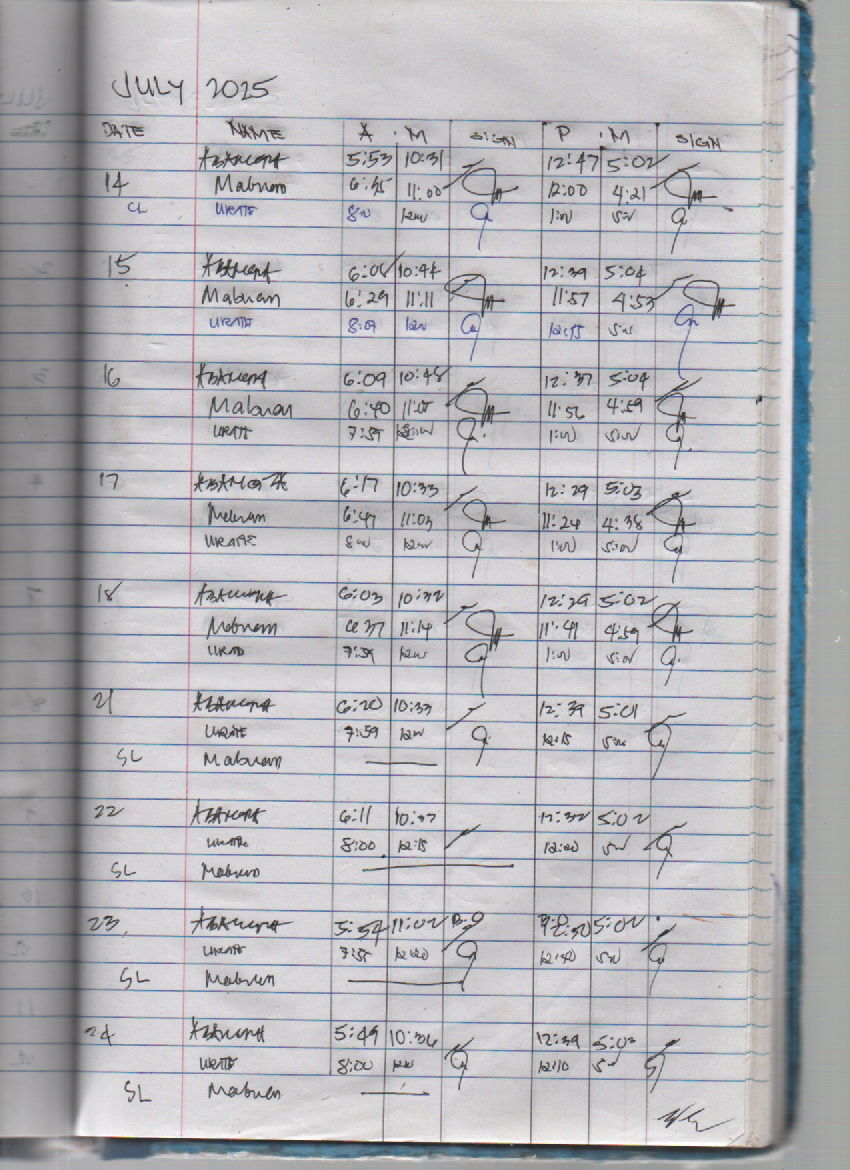 JULY 2025
DATE NAME A .M SIGN P .M SIGN
5:53 10:31 12:47 5:02
14 Mabuan 6:45 11:00 12:00 4:21
CL URATE 8:00 12:00 1:00 5:00
15 6:06 10:44 12:39 5:04
Mabuan 6:29 11:11 11:57 4:53
URATE 8:09 12:00 12:15 5:00
16 6:09 10:48 12:37 5:04
Mabuan 6:40 11:15 11:56 4:59
URATE 7:59 12:00 1:00 5:00
17 6:17 10:33 12:29 5:03
Mabuan 6:47 11:03 11:24 4:38
URATE 8:00 12:00 1:00 5:00
18 6:03 10:32 12:29 5:02
Mabuan 6:37 11:14 11:41 4:59
URATE 7:59 12:00 1:00 5:00
21 6:20 10:33 12:39 5:01
URATE 7:59 12:00 12:15 5:00
SL Mabuan
22 6:11 10:37 12:32 5:02
URATE 8:00 12:15 12:20 5:00
SL Mabuan
23 5:54 11:02 12:50 5:02
URATE 7:55 12:20 12:30 5:00
SL Mabuan
24 5:49 10:36 12:39 5:03
URATE 8:00 12:00 12:10 5:00
SL Mabuan